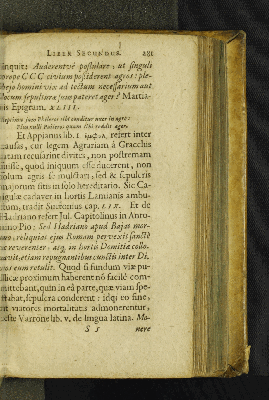 LIBER SECUNDUS. 281
inquit: Auderentve postulare: ut singuli
prope CCC civium possiderent agros: ple-
bejo homini vix ad tectum necessarium aut
locum sepulturæ suus pateret ager? Martia-
lis Epigram. XLIII.
Septimo jam Phileros tibi conditur uxor in agro:
Plus nulli Phileros quam tibi reddit ager.
Et Appianus lib. 1. refert inter
causas, cur legem Agrariam à Gracchus
latam recusarint divites, non postremam
fuisse, quod iniquum esse ducerent, non
solum agris se mulctari, sed & sepulcris
majorum sitis in solo hereditario. Sic Ca-
ligulæ cadaver in Hortis Lamianis ambu-
stum, tradit Suetonius cap. LIX. Et de
Hadriano refert Jul. Capitolinus in Anto-
nino Pio: Sed Hadriano apud Bajas mor-
tuo, reliquias ejus Romam pervexit sanctè
ac reverenter: atq, in hortis Domitiæ collo-
cavit, etiam repugnantibus cunctis inter Di-
vos eum retulit. Quod si fundum viæ pu-
blicæ proximum haberent nõ facilè com-
mittebant, quin in eâ parte, quæ viam spe-
ctabat, sepulcra conderent: idq; eo fine,
ut viatores mortalitatis admonerentur,
teste Varrone lib. v. de lingua latina. Mo-
S 5 nere